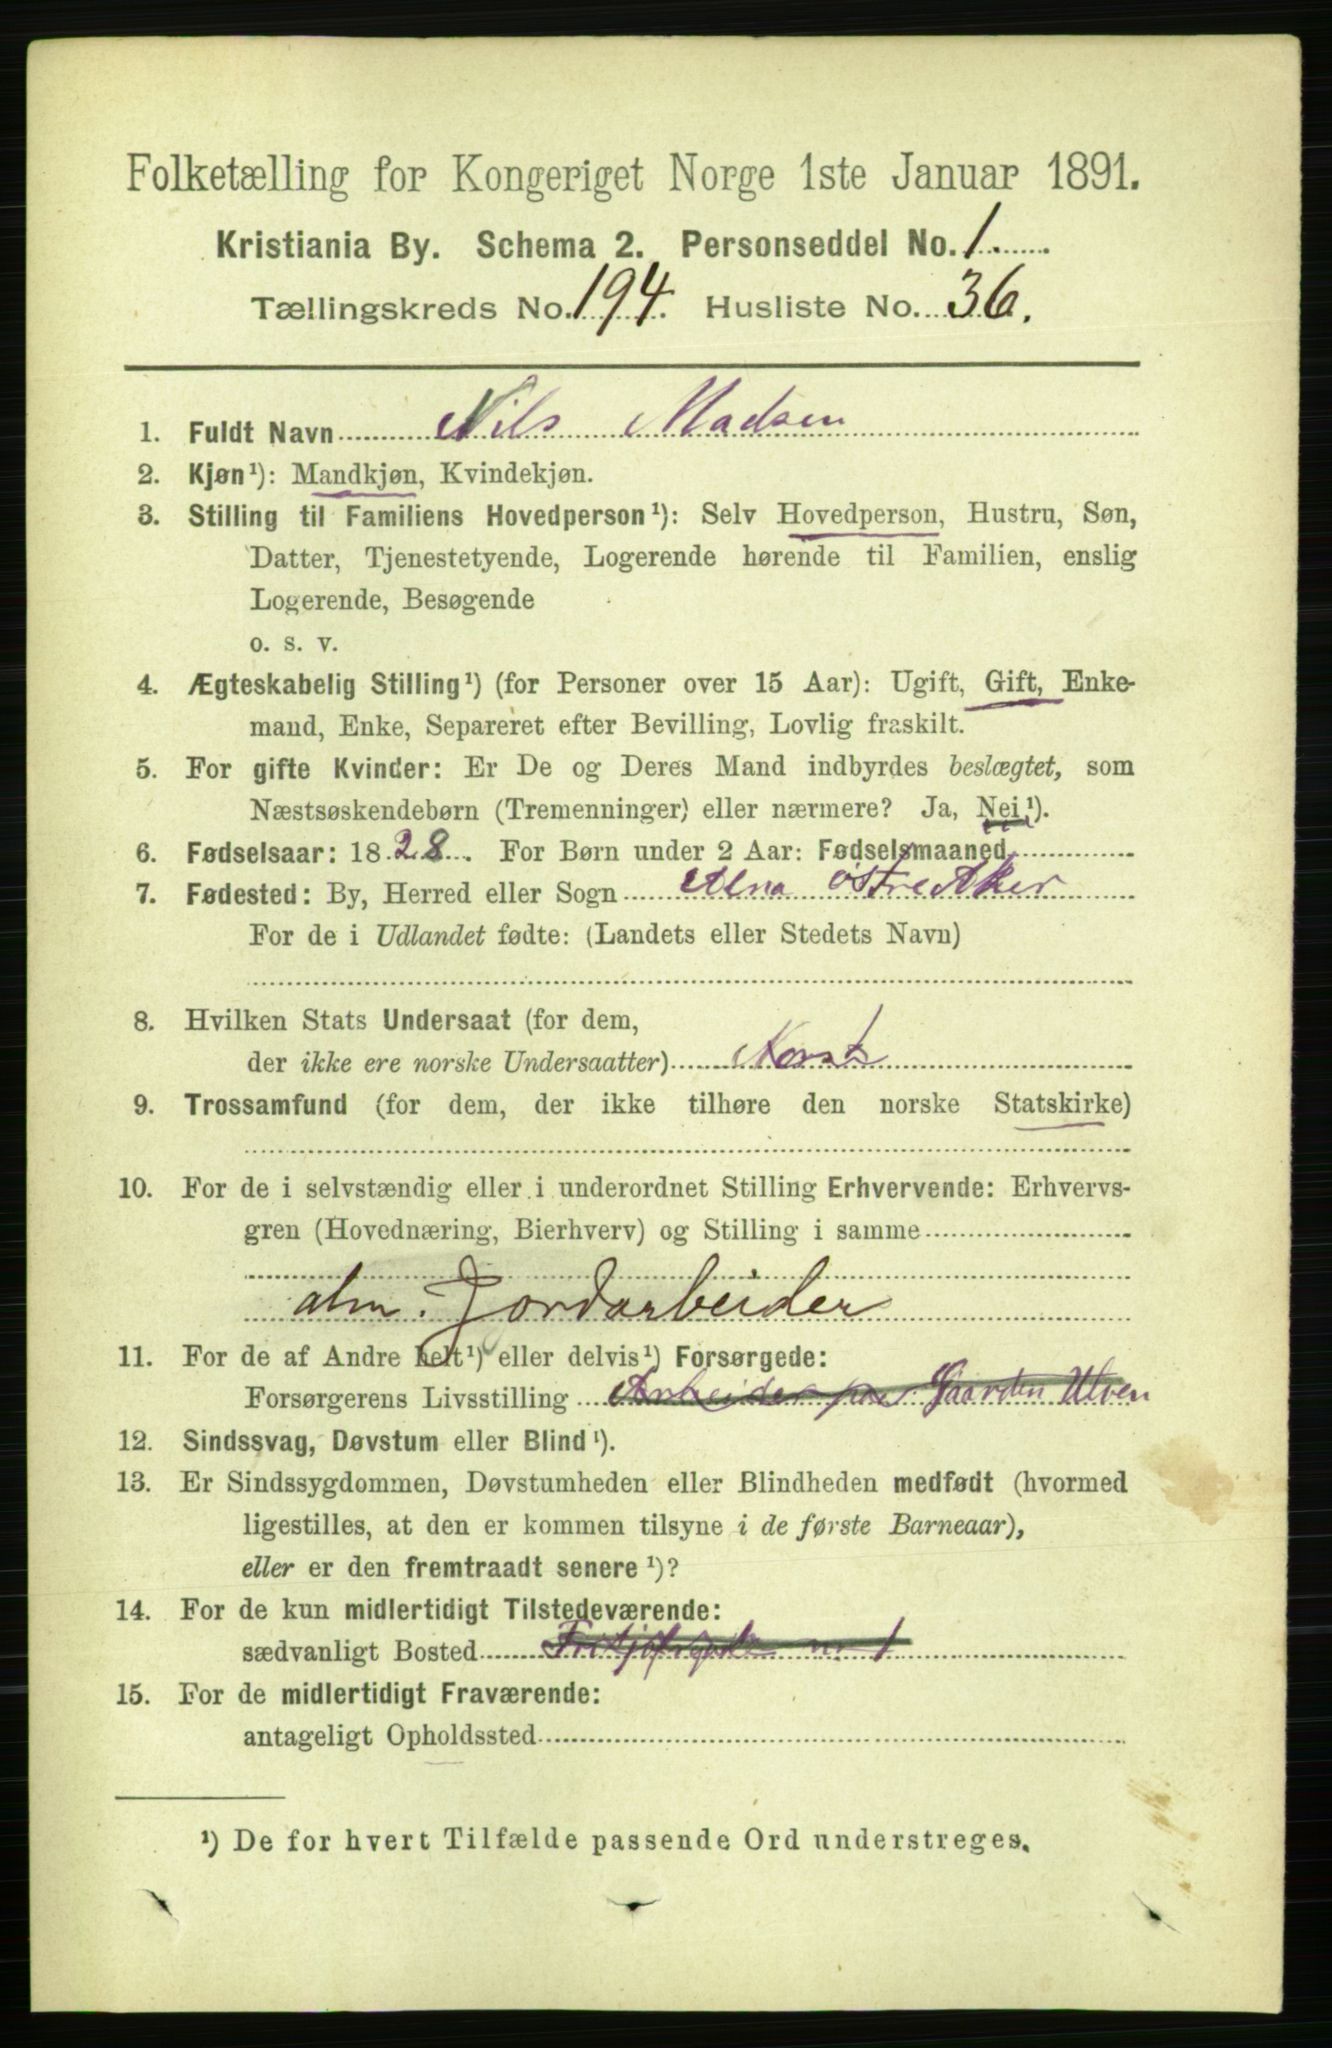 Folketælling for Kongeriget Norge 1ste Januar 1891.
Kristiania By. Schema 2. Personseddel No. 1.
Tællingskreds No. 194. Husliste No. 36.
1. Fuldt Navn Nils Madsen
2. Kjøn¹): Mandkjøn, Kvindekjøn.
3. Stilling til Familiens Hovedperson¹): Selv Hovedperson, Hustru, Søn,
Datter, Tjenestetyende, Logerende hørende til Familien, enslig
Logerende, Besøgende
o. s. v.
4. Ægteskabelig Stilling¹) (for Personer over 15 Aar): Ugift, Gift, Enke-
mand, Enke, Separeret efter Bevilling, Lovlig fraskilt.
5. For gifte Kvinder: Er De og Deres Mand indbyrdes beslægtet, som
Næstsøskendebørn (Tremenninger) eller nærmere? Ja, Nei¹).
6. Fødselsaar: 1828. For Børn under 2 Aar: Fødselsmaaned
7. Fødested: By, Herred eller Sogn Alna østre Aker
For de i Udlandet fødte: (Landets eller Stedets Navn)
8. Hvilken Stats Undersaat (for dem,
der ikke ere norske Undersaatter) Norsk
9. Trossamfund (for dem, der ikke tilhøre den norske Statskirke)
10. For de i selvstændig eller i underordnet Stilling Erhvervende: Erhvervs-
gren (Hovednæring, Bierhverv) og Stilling i samme
alm. Jordarbeider
11. For de af Andre helt¹) eller delvis¹) Forsørgede:
Forsørgerens Livsstilling Arbeider paa Gaarden Ulven
12. Sindssvag, Døvstum eller Blind¹).
13. Er Sindssygdommen, Døvstumheden eller Blindheden medfødt (hvormed
ligestilles, at den er kommen tilsyne i de første Barneaar),
eller er den fremtraadt senere¹)?
14. For de kun midlertidigt Tilstedeværende:
sædvanligt Bosted Fritjofsgade nr 1
15. For de midlertidigt Fraværende:
antageligt Opholdssted
¹) De for hvert Tilfælde passende Ord understreges.